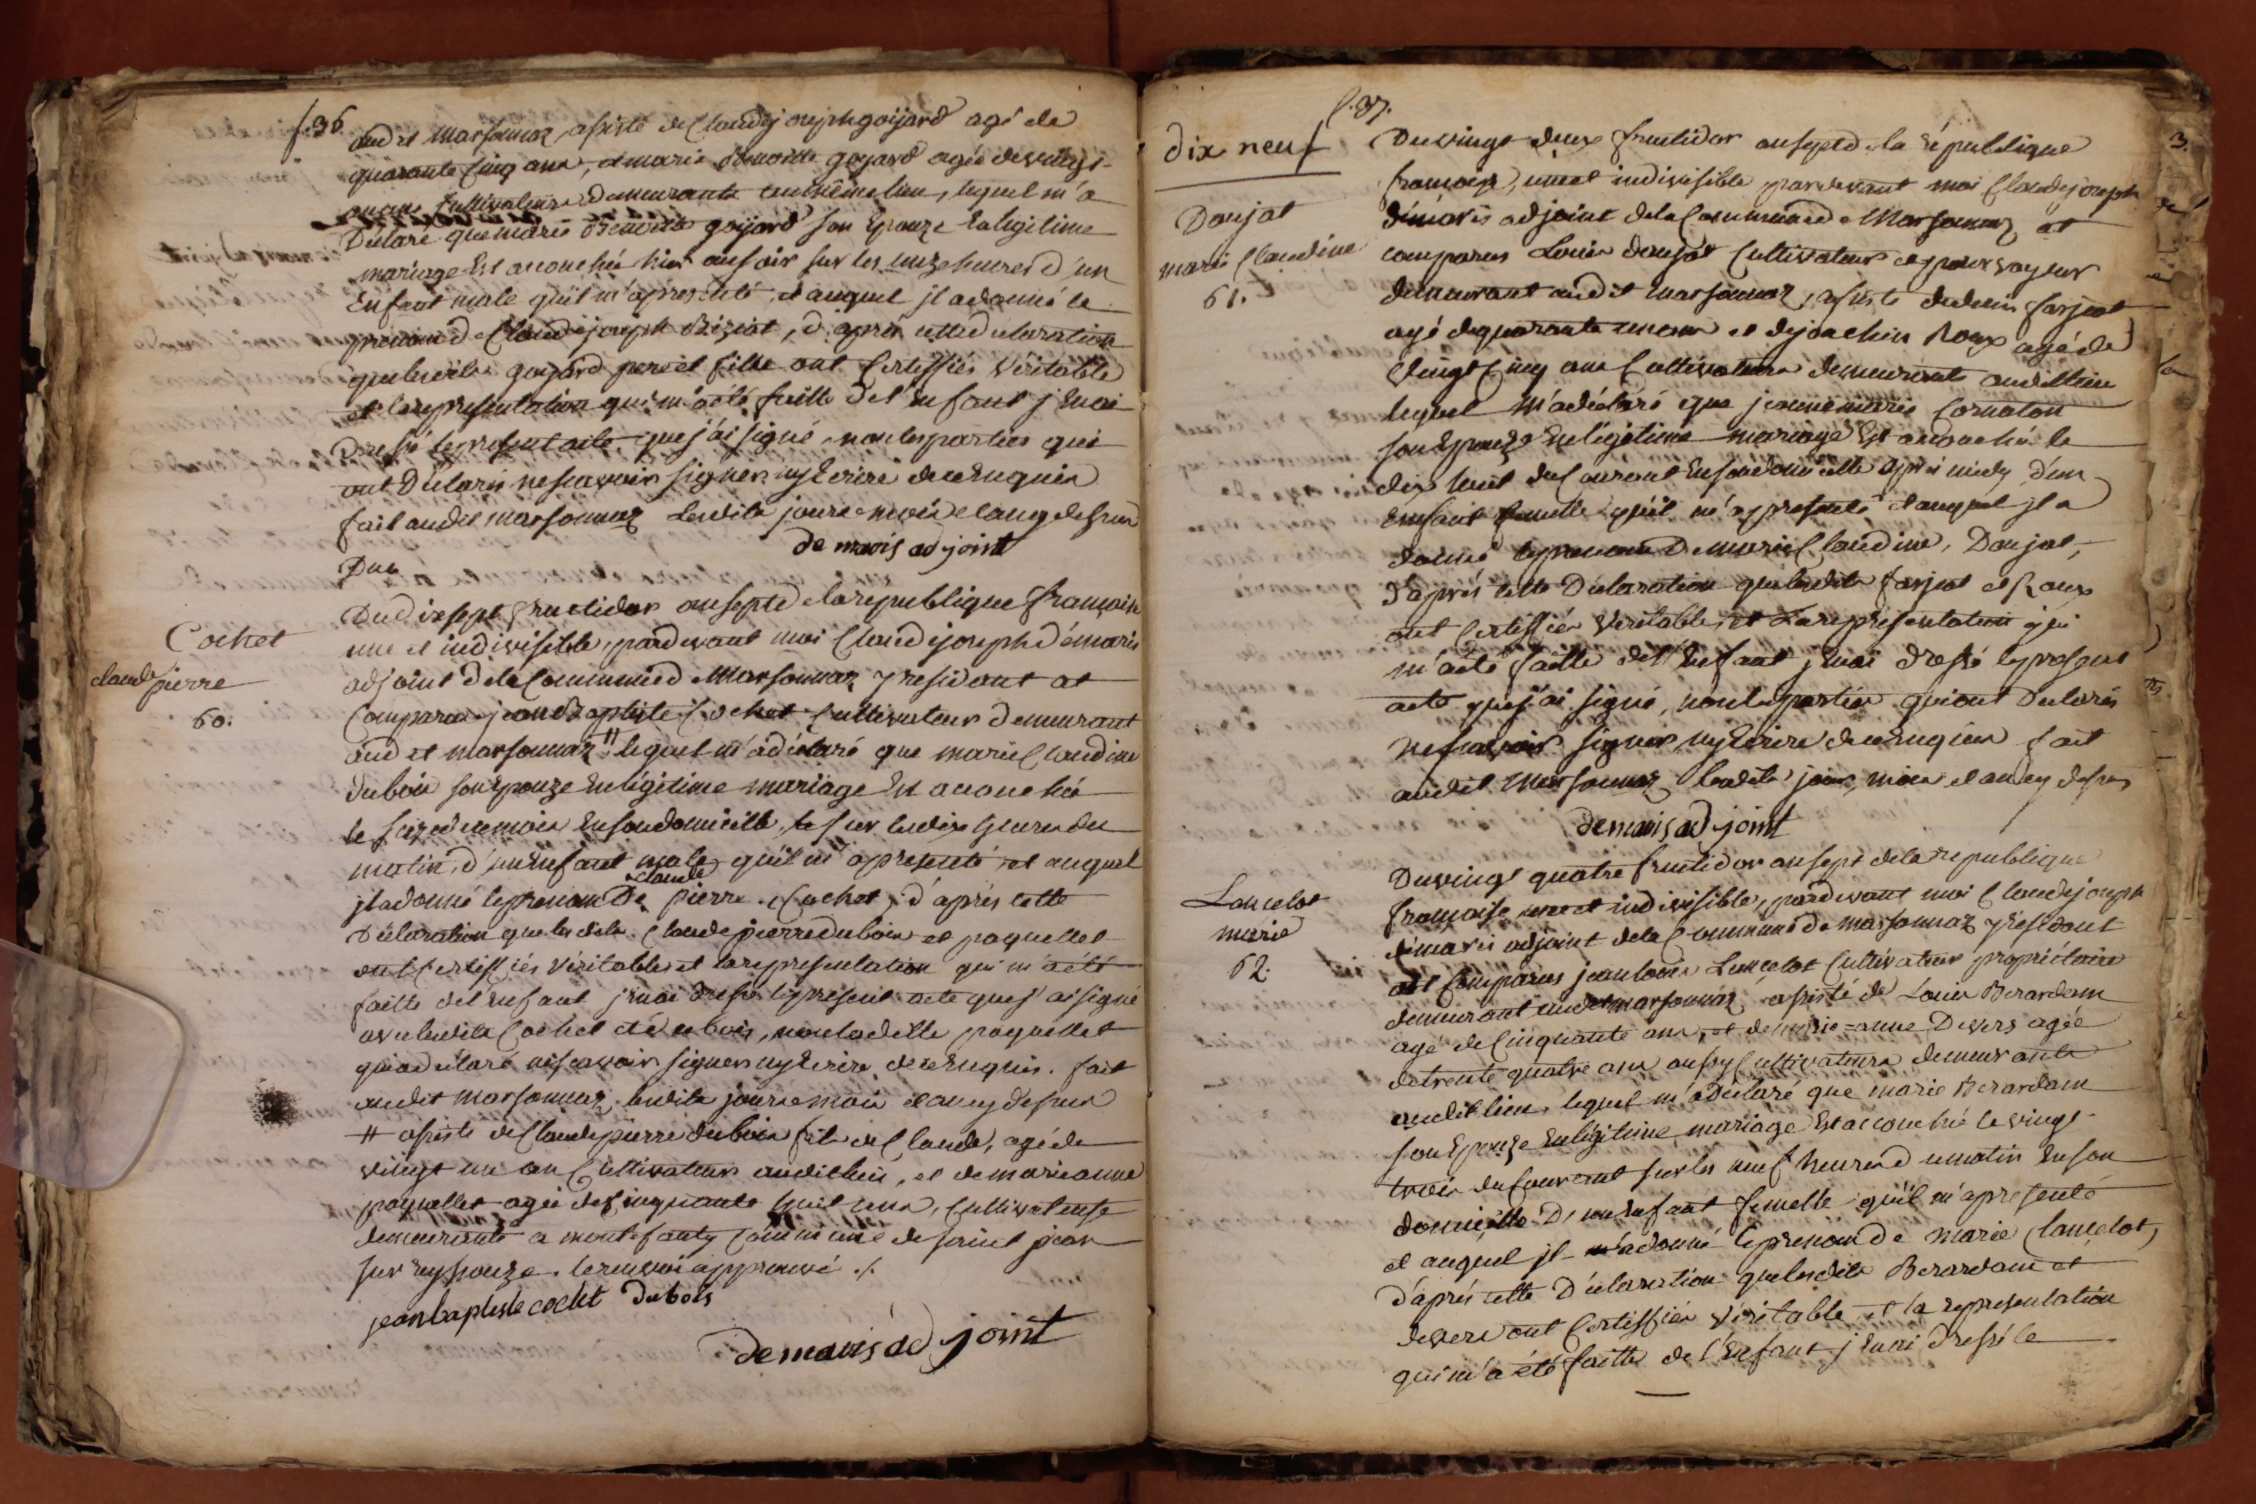 f. 36
audit marsonnaz assisté de Claude joseph goÿard agé de
quarante Cinq ans, et marie Benoitte goyard agée de vingt
ans Cultivateurs demeurants au même lieu, lequel m'a
Déclaré que marie Benoitte goÿard son Epouze En légitime
mariage Est accouchée hier au soir sur les unze heures d'un
Enfant male qu'il m'a presenté, et auquel jl a donné le
prenom de Claude joseph Biziat, d'après cette declaration
que lesdits goyard pere et fille ont Certiffiés Véritable
et la representation qui m'a été faitte de l'Enfant j'En ai
Dressé le present acte que j'ai signé, non les parties qui
ont Déclarés ne scavoir signer ny Ecrire de ce Enquis
fait audit marsonnaz Lesdits jour et mois et an que des
sus
de maris adjoint
Cochet
claude pierre
60.
Du dixsept fructidor an sept de la republique francoise
une et indivisible, pardevant moi Claude joseph démaris
adjoint de la Commune de Marsonnaz y residant at
Comparu jean Baptiste Cochet Cultivateur demeurant
audit marsonnaz # lequel m'a déclaré que marie Claudine
dubois son Epouze En légitime mariage Est accouchée
le seize du mois En son domicille, sur les dix heures du
matin, d'un Enfant male qu'il m'a presenté, et auquel
claude
jl a donné le prenom De pierre Cochet, d'après cette
Déclaration que lesdits Claude pierre dubois et paquellet
ont Certiffiés Véritable et la representation qui m'a été
faitte de l'Enfant j'En ai dressé le present acte que j'ai signé
avec lesdits Cochet et dubois, non la ditte paquellet
qui a déclaré ne scavoir signer ny Ecrire de ce Enquis. fait
audit marsonnaz, lesdits jour et mois et an que dessus
# assisté de Claude pierre dubois fils de Claude, agé de
vingt un an Cultivateur audit lieu, et de marie anne
paquellet agée de Cinquante huit ans, Cultivateuse
demeurante a montefanty Commune de saint jean
sur reyssouze. le renvoi approuvé ./.
jean baptiste cochet Dubois
demaris adjoint
f. 37.
dix neuf
Donjat
marie Claudine
61.
Du vingt deux fructidor an sept de la république
francoise, une et indivisible pardevant moi Claude joseph
démaris adjoint de la Commune de Marsonnaz at
comparu Louis donjat Cultivateur
demeurant audit marsonnaz, assisté de denis farjeot
agé de quarante un ans et de joachin Roux agé de
Vingt Cinq ans Cultivateurs demeurants audit lieu
lequel m'a déclaré que jeanne marie Cornaton
son Epouze En légitime mariage Est accouchée le
dix huit du Courant En son domicille après midy d'un
Enfant femelle qu'il m'a presenté et auquel jl a
donné le prenom De marie Claudine, Donjat,
d'après cette Déclaration que lesdits farjeot et Roux
ont Certiffiés Veritable, et La representation qui
m'a été faitte de l'Enfant j'En ai dressé le present
acte que j'ai signé, non les parties qui ont Declarés
ne scavoir signer ny Ecrire de ce Enquis fait
audit Marsonnaz lesdits jour, mois et an que dessus
demaris adjoint
Lancelot
marie
62.
Du vingt quatre fructidor an sept de la republique
francoise une et indivisible, pardevant moi Claude joseph
démaris adjoint de la Commune de marsonnaz y residant
at Comparu jean louis Lancelot Cultivateur propriétaire
demeurant audit marsonnaz assisté de Louis Berardam
agé de Cinquante ans, et de marie=anne Devers agée
de trente quatre ans aussy Cultivateurs demeurants
audit lieu, lequel m'a Déclaré que marie Berardam
son Epouze En légitime mariage Est accouchée le vingt
trois du Courant sur les neuf heures du matin En son
domicille D'un Enfant femelle qu'il m'a presenté
et auquel jl a donné le prenom de marie Lancelot,
d'après cette Déclaration que lesdits Berardam et
devers ont Certiffiés Véritable et la representation
qui m'a été faitte de l'Enfant j'En ai dressé le